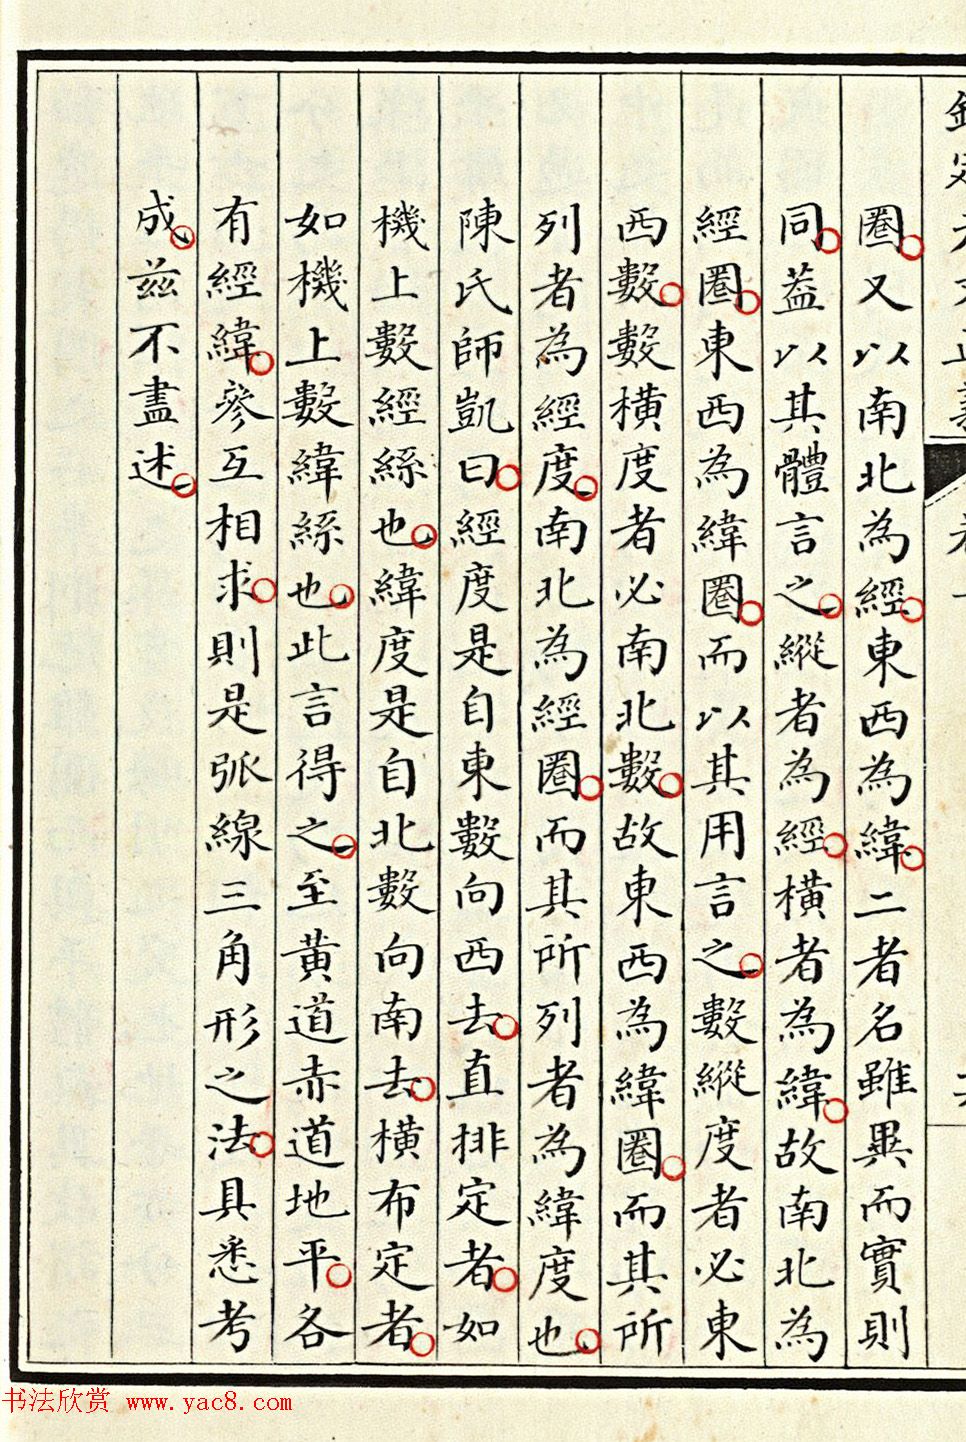 圈又以南北為經東西為緯二者名雖異而實則
同葢以其體言之縱者為經橫者為緯故南北為
經圈東西為緯圈而以其用言之數縱度者必東
西數數橫度者必南北數故東西為緯圈而其所
列者為經度南北為經圈而其所列者為緯度也
陳氏師凱曰經度是自東數向西去直排定者如
機上數經絲也緯度是自北數向南去橫布定者
如機上數緯絲也此言得之至黄道赤道地平各
有經緯參互相求則是弧線三角形之法具悉考
成兹不盡述
书法欣赏 www.yac8.com